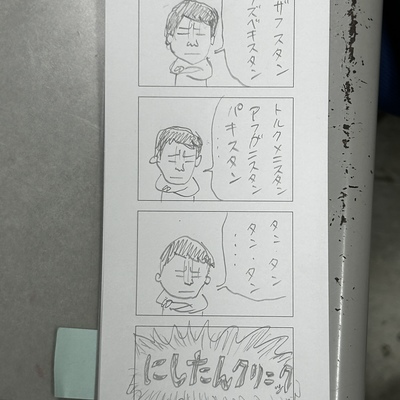 ザフスタン
ズベキスタン
トルクメニスタン
アフガニスタン
パキスタン
タン タン
タン・タン・・・・
にしたんクリニック